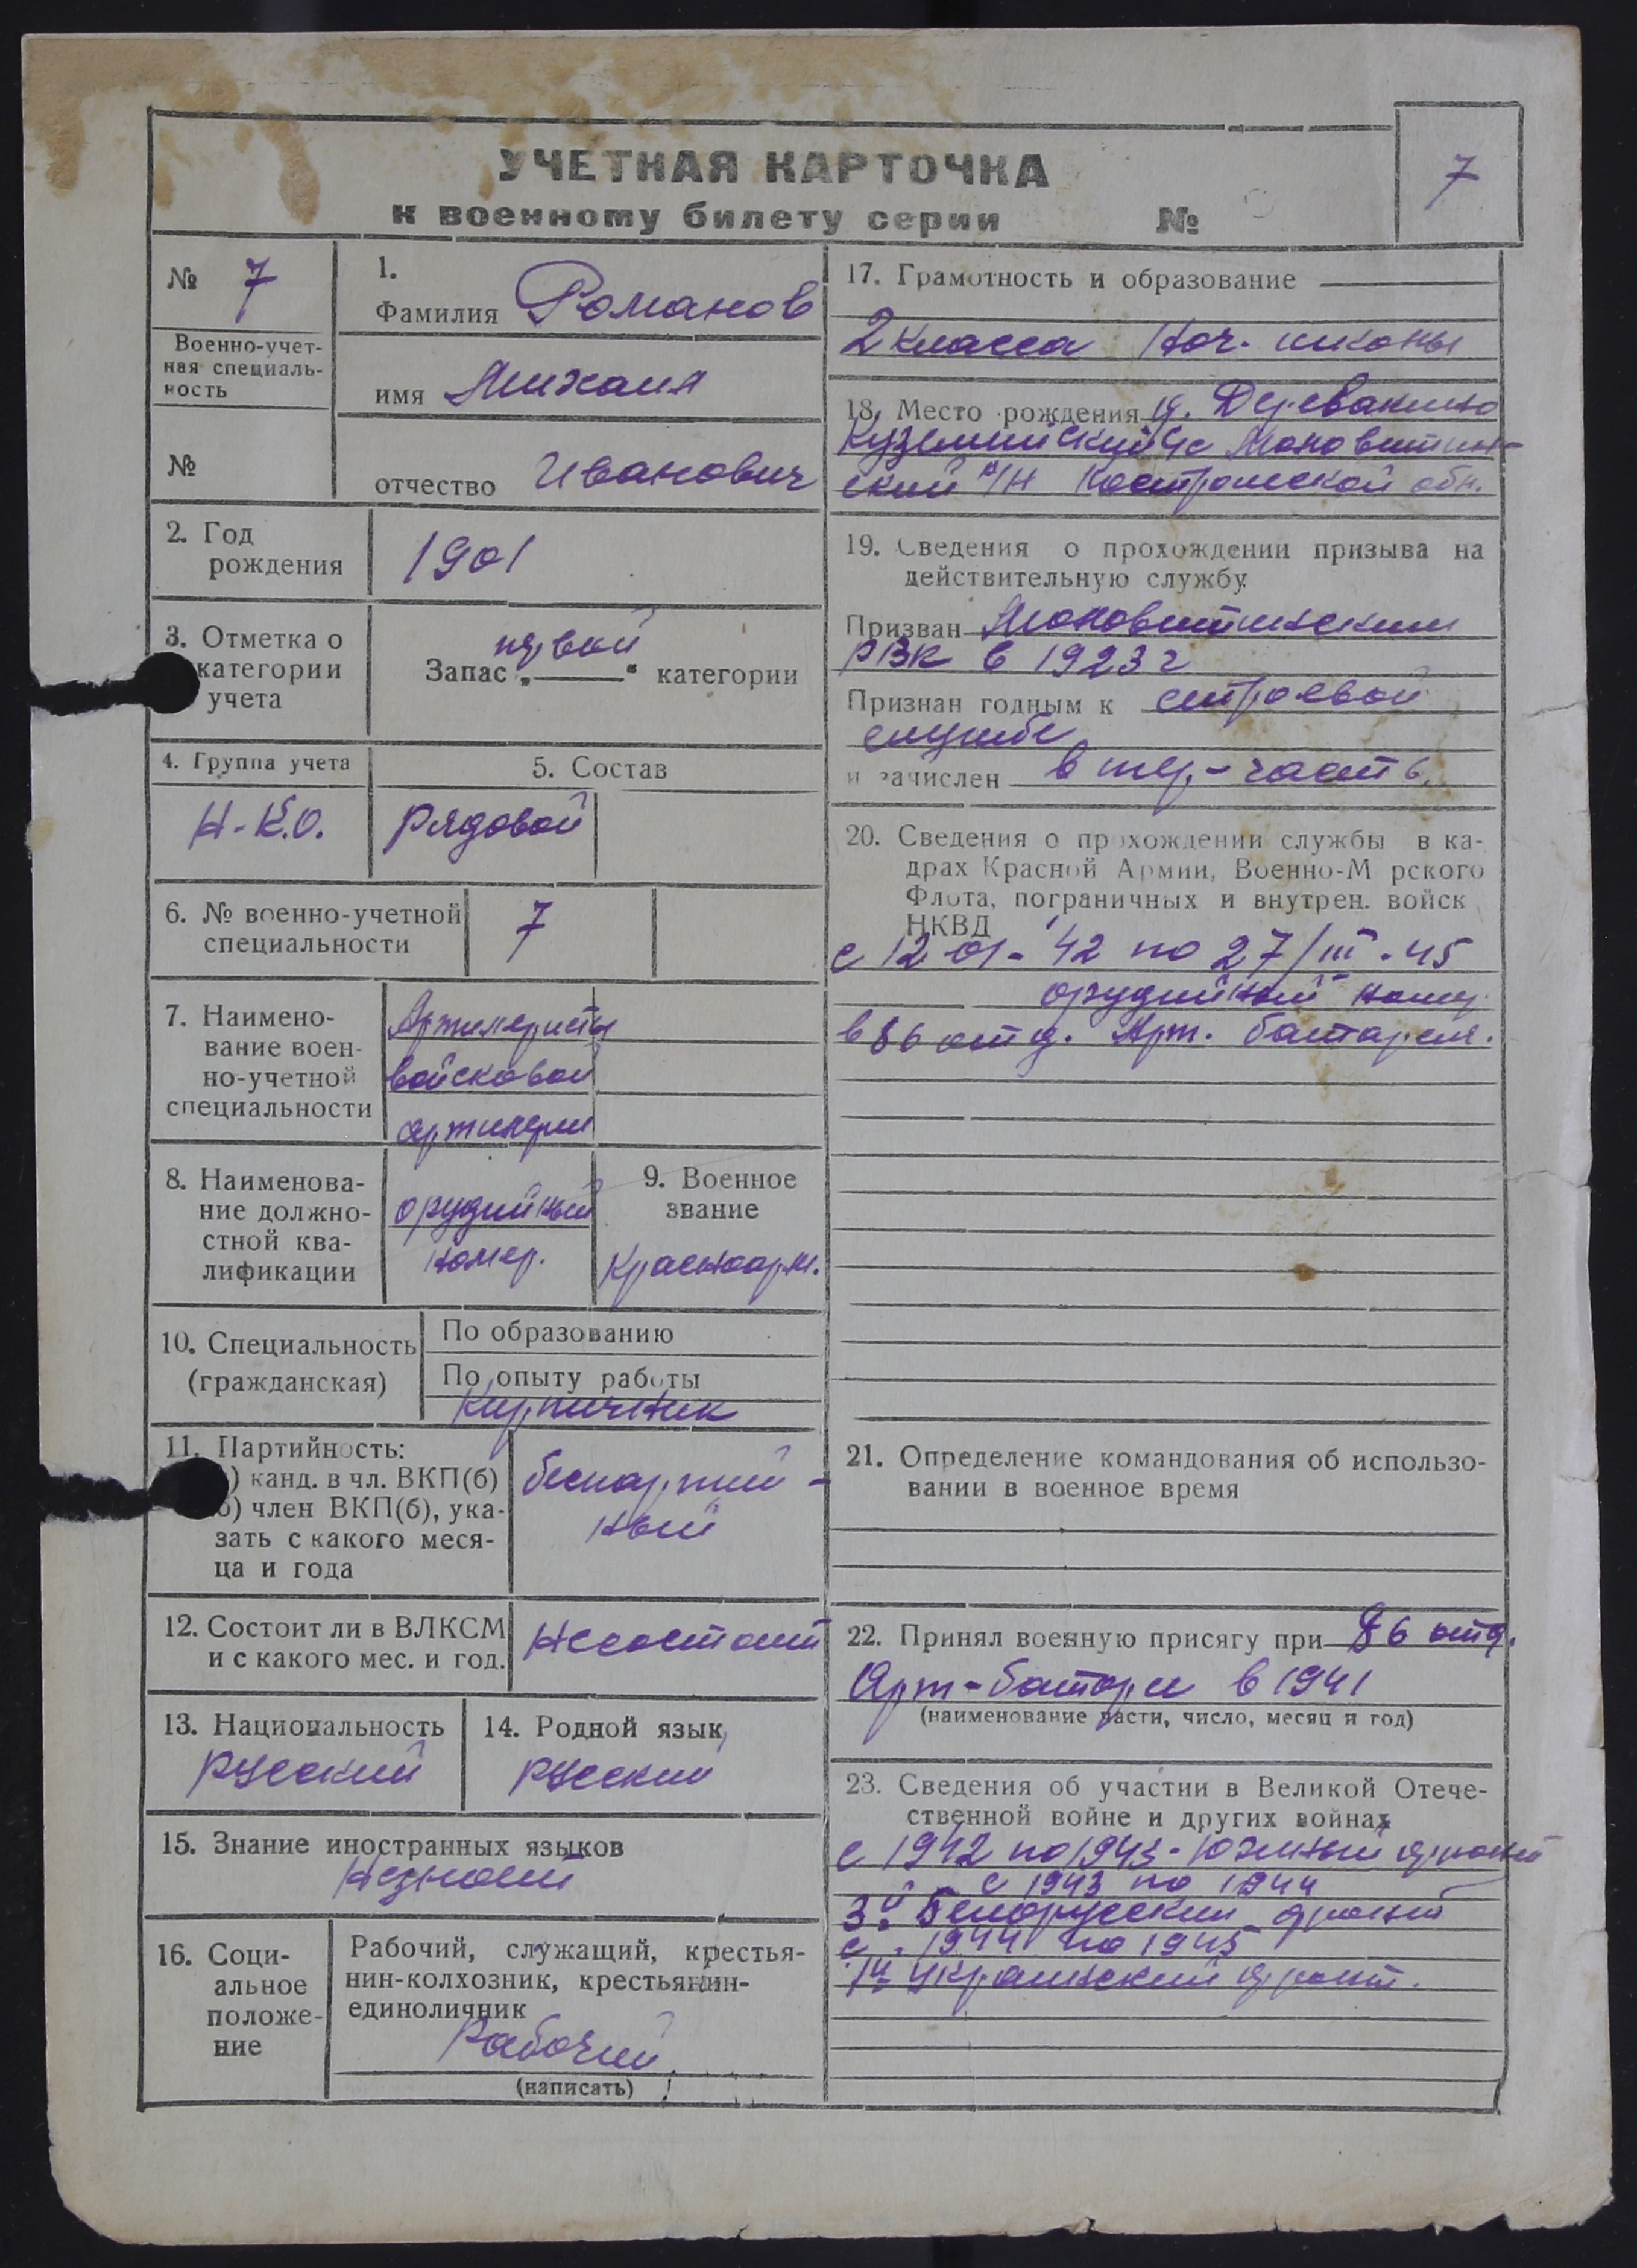 УЧЕТНАЯ КАРТОЧКА
к военному билету серии №
7
№ 7
Военно-учет-
ная специаль-
ность
№
1.
Фамилия Романов
имя Михаил
отчество Иванович
2. Год
рождения
1901
3. Отметка о
категории
учета
первой
Запас „——“ категории
4. Группа учета
Н-К.О.
5. Состав
рядовой
6. № военно-учетной
специальности
7
7. Наимено-
вание воен-
но-учетной
специальности
Артилеристы
войсковой
артилери
8. Наименова-
ние должно-
стной ква-
лификации
орудийный
номер.
9. Военное
звание
Красноарм.
10. Специальность
(гражданская)
По образованию
По опыту работы
Кирпичник
11. Партийность:
) канд. в чл. ВКП(б)
б) член ВКП(б), ука-
зать с какого меся-
ца и года
беспартий-
ный
12. Состоит ли в ВЛКСМ
и с какого мес. и год.
Несостоит
13. Национальность
русский
14. Родной язык
русский
15. Знание иностранных языков
Незнает
16. Соци-
альное
положе-
ние
Рабочий, служащий, крестья-
нин-колхозник, крестьянин-
единоличник
Рабочий
(написать)
17. Грамотность и образование
2 класса нач. школы
18. Место рождения д. Деревакино
Куземинский с/с
ский р/н Костромской обл.
19. Сведения о прохождении призыва на
действительную службу.
Призван
РВК в 1923 г
Признан годным к строевой
службе
и зачислен в тер.-часть
20. Сведения о прохождении службы в ка-
драх Красной Армии, Военно-М рского
Флота, пограничных и внутрен. войск
НКВД
с 12 01-42 по 27/III-45
орудийный номер
в 86 отд. Арт. батарея.
21. Определение командования об использо-
вании в военное время
22. Принял военную присягу при 86 отд.
Арт-батаре в 1941
(наименование части, число, месяц и год)
23. Сведения об участии в Великой Отече-
ственной войне и других войнах
с 1942 по 1943-Южный фронт
с 1943 по 1944
3й Белорусский фронт
с 1944 по 1945
1й Украинский фронт.